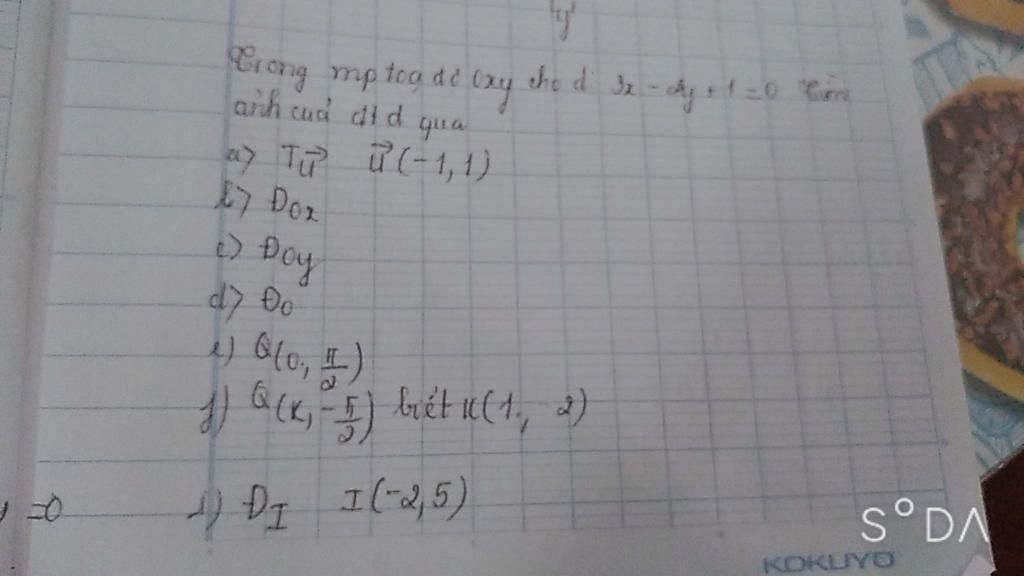 y
Trong mp toạ độ Oxy cho d 3x - 2y + 1 = 0 Tìm
ảnh của đt d qua
a> Tu⃗ u⃗ (-1, 1)
b> Đox
c> Đoy
d> Đo
e) Q(0, π/2)
f) Q(K, -π/2) biết K(1, -2)
=0
ĐI I(-2, 5)
S°DA
KOKUYO